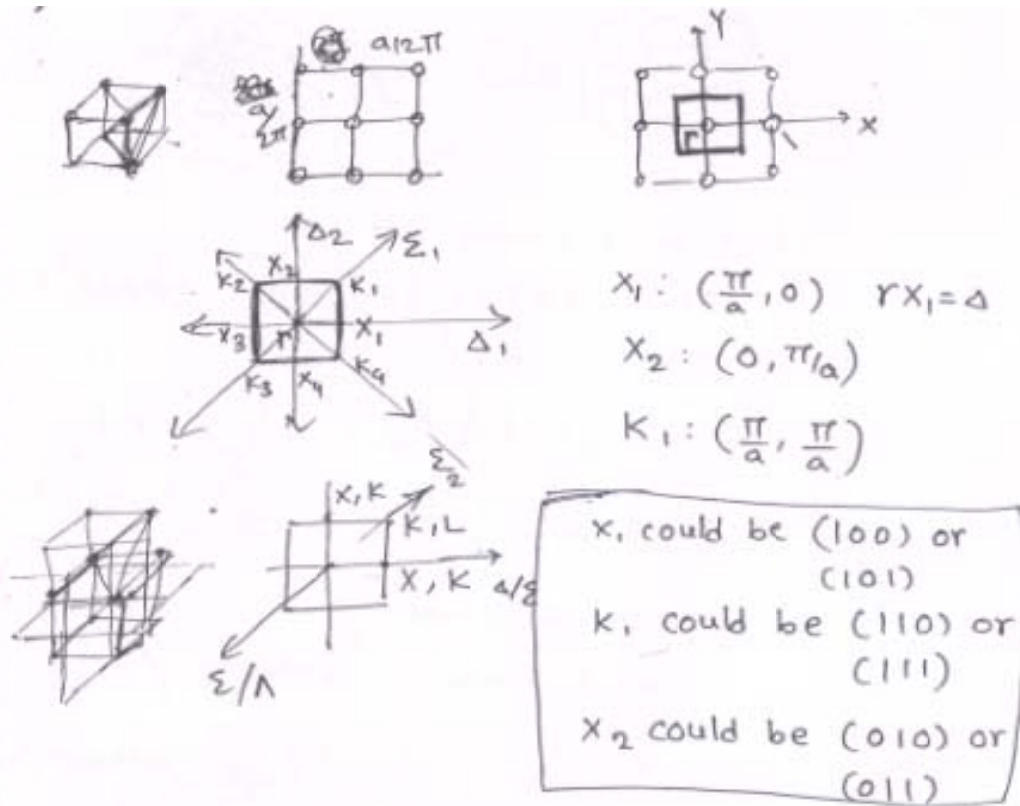 a/2π
a/
2π
Y
X
Γ
Δ2
Σ1
K2
X2
K1
X3
Γ
X1
Δ1
K3
X4
K4
Σ2
X1 : (π/a, 0) ΓX1 = Δ
X2 : (0, π/a)
K1 : (π/a, π/a)
X, K
K, L
X, K
Δ/Σ
Σ/Λ
X1 could be (100) or
(101)
K1 could be (110) or
(111)
X2 could be (010) or
(011)